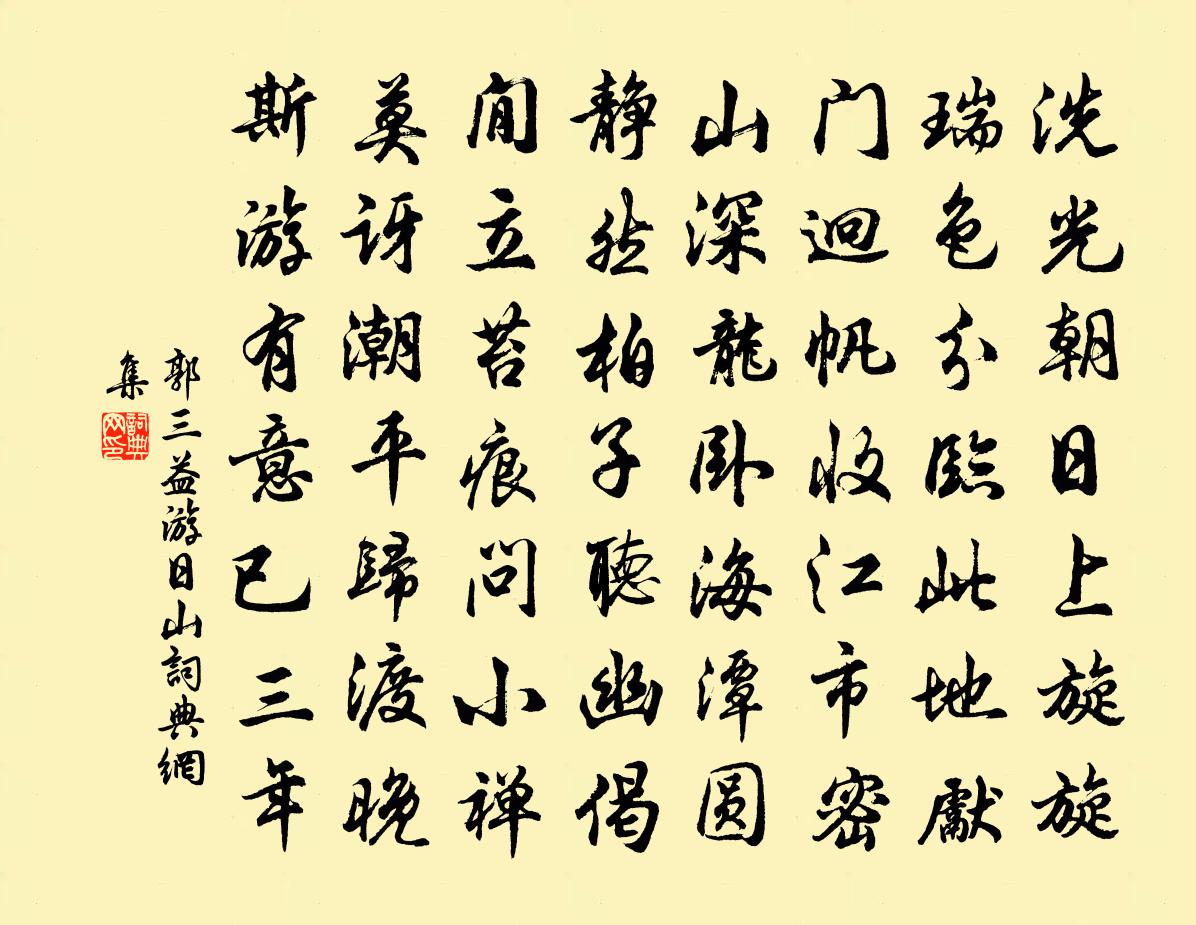 洗光朝日上旋旋
瑞色分臨此地獻
门迥帆收江市密
山深龍卧海潭圆
静然柏子聽幽偈
閒立苔痕问小禅
莫讶潮平歸渡晚
斯游有意已三年
郭三益游日山詞典網
集
詞典网印